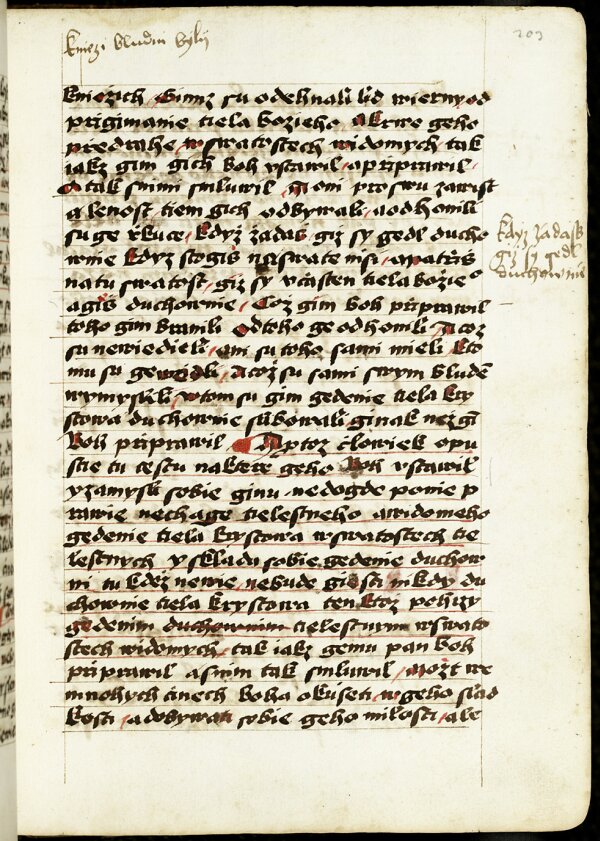 kniezi bludiu byly
203
knieżich / Gimż su odehnali lid wierny od
prigimanie tiela bozieho / A krwe geho
predrahe / w swatostech widomych / tak
iakż gim gich boh vstawil / a priprawil /
A tak snimi smluwil / gi oni pro swu zawist
a lenost / tiem gich odbywali / a odhonili
su ge rkuce / kdyż żadaś giż sy gedl ducho
wnie kdyż stogiś na swate msi / a patriś
na tu swatost / giż sy vcasten tiela bozieo
a giś duchownie / Coż gim boh pripravil
toho gim branili Od toho ge odhonili / A coż
su newiedieli / oni su toho sami mieli kto
mu su gewedli / A coż su sami swym bludē
wymyslili / w tom su gim gedenie tiela kry
stowa duchownie slibowali ginak neż gī
boh pripravil / A ktoż cłowiek opu
stie tu cestu na ktere geho boh vstawil
y zamysli sobie ginu / nedogde ponie p
rawie nechage tielestneho a widomeho
gedenie tiela krystowa w swatostech tie
lestnych y skladu sobie gedenie duchow
ni tu kdeż newie / nebude giesti nikdy du
chownie tiela krystowa ten ktoż pohrzy
gedenim duchownim tielestnym w swato
stech widomych / tak iakż gemu pan boh
pripravil a snim tak smluwil / Możt we
mnohych cinech boha okuseti / w geho slad
kosti / a dobywati sobie geho milosti / ale
kdyż żadaś
giż sy gedl
duchownie